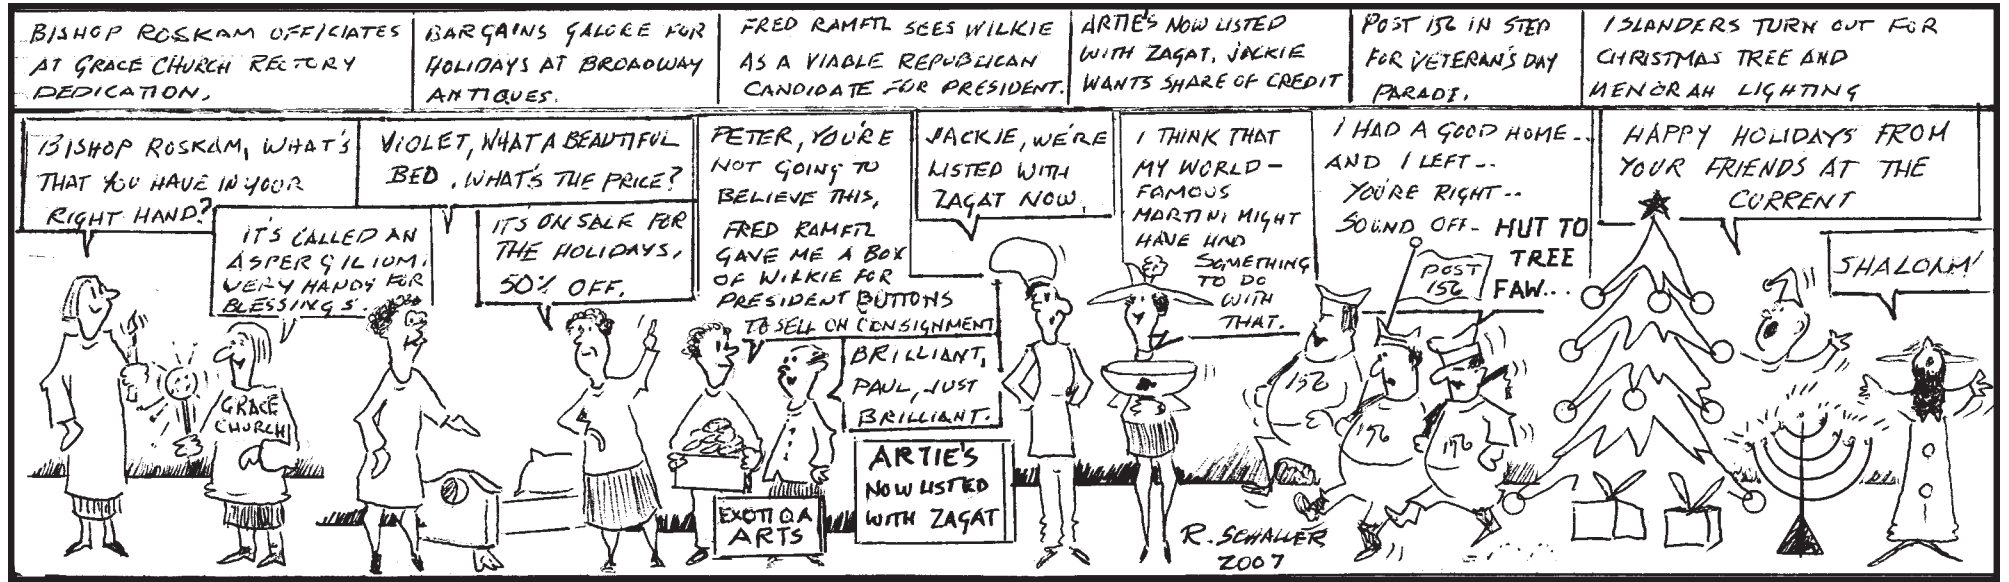 BISHOP ROSKAM OFFICIATES
AT GRACE CHURCH RECTORY
DEDICATION.
BARGAINS GALORE FOR
HOLIDAYS AT BROADWAY
ANTIQUES.
FRED RAMFTL SEES WILKIE
AS A VIABLE REPUBLICAN
CANDIDATE FOR PRESIDENT.
ARTIE'S NOW LISTED
WITH ZAGAT, JACKIE
WANTS SHARE OF CREDIT
POST 156 IN STEP
FOR VETERAN'S DAY
PARADE.
ISLANDERS TURN OUT FOR
CHRISTMAS TREE AND
MENORAH LIGHTING
BISHOP ROSKAM, WHAT'S
THAT YOU HAVE IN YOUR
RIGHT HAND?
IT'S CALLED AN
ASPERGILIUM.
VERY HANDY FOR
BLESSINGS.
VIOLET, WHAT A BEAUTIFUL
BED. WHAT'S THE PRICE?
IT'S ON SALE FOR
THE HOLIDAYS.
50% OFF.
PETER, YOU'RE
NOT GOING TO
BELIEVE THIS,
FRED RAMFTL
GAVE ME A BOX
OF WILKIE FOR
PRESIDENT BUTTONS
TO SELL ON CONSIGNMENT
BRILLIANT,
PAUL, JUST
BRILLIANT.
JACKIE, WE'RE
LISTED WITH
ZAGAT NOW.
I THINK THAT
MY WORLD-
FAMOUS
MARTINI MIGHT
HAVE HAD
SOMETHING
TO DO
WITH
THAT.
I HAD A GOOD HOME--
AND I LEFT--
YOU'RE RIGHT--
SOUND OFF-
HUT TO
TREE
FAW...
HAPPY HOLIDAYS FROM
YOUR FRIENDS AT THE
CURRENT
SHALOM!
GRACE
CHURCH
EXOTIQA
ARTS
ARTIE'S
NOW LISTED
WITH ZAGAT
POST
156
156
156
156
R. SCHALLER
2007